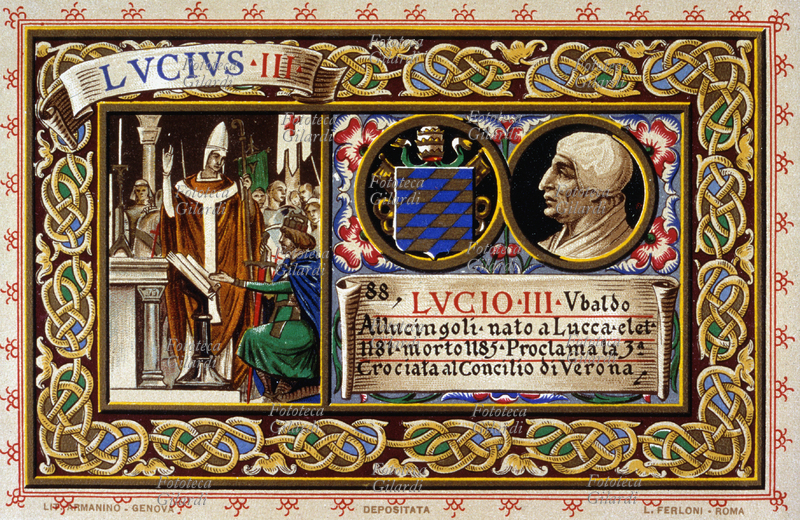 LVCIVS·III·
88, LVCIO·III·Vbaldo
Allucingoli·nato a Lucca·elet·
1181·morto 1185·Proclama la 3ª
Crociata al Concilio di Verona
LIT. ARMANINO - GENOVA
DEPOSITATA
L. FERLONI - ROMA
Fototeca
Gilardi